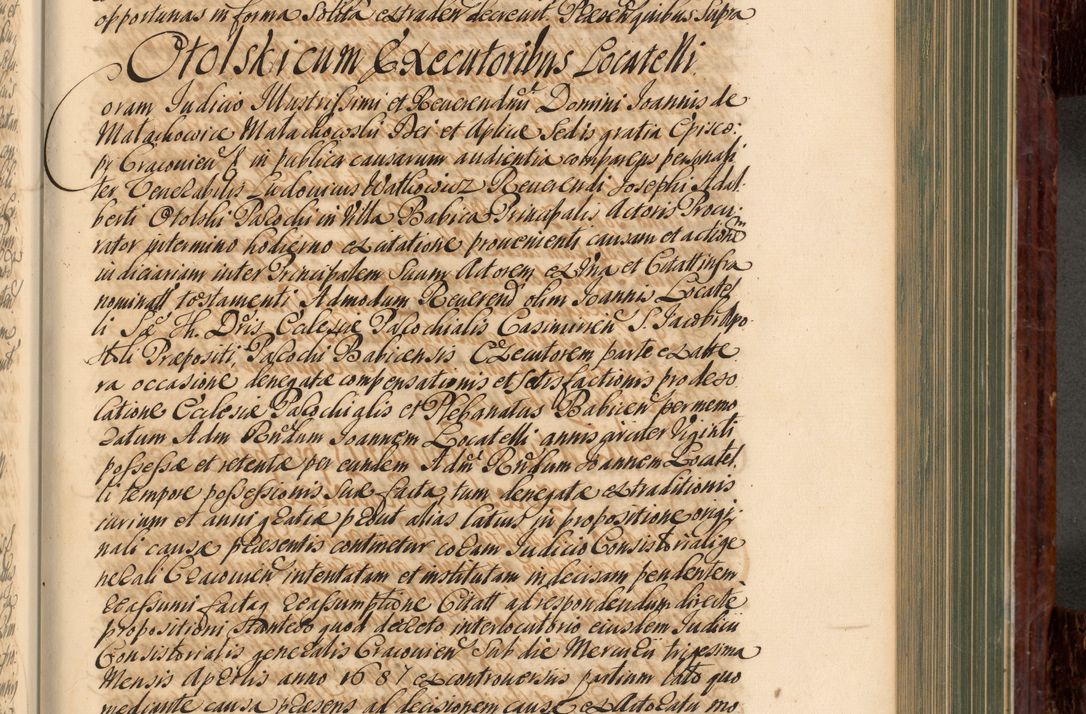 opportunas in forma Solita extraden decrevit Præsen quibus Supra
Otolskicum Executoribus Locatelli.
Coram Judicio Illustrissimi et Reverendmi Domini Joannis de
Małachowice Małachowski Dei et Aplicæ Sedis gratia Episco:
pi Cracovien in publica causarum audientia comparens personali
ter Venerabilis Ludovicus Wathowicz Reverendi Josephi Adal
berti Otolski Parochi in Villa Babice Principalis Actoris Procu:
rator in termino hodierno ex citatione provenienti causam et actionem
judiciariam inter Principalem Suum Actorem ex Una et Citatt infra
nominatt testamenti Admodum Reverend olim Joannis Locatel
li Sæ Th. Dris Ecclesiæ Parochialis Casimirien S. Jacobi Apo
stoli Præpositi Parochi Babicensis Executorem parte ex alte
ra occasione denegatæ compensationis et satisfactionis pro deso
latione Ecclesiæ Parochialis et Plebanatus Babicen per memo
ratum Adm Rndum Joannem Locatelli annis circiter Viginti
possessæ et retentæ per eundem Admm Rndum Joannem Locatel
li tempore possessionis suæ facta, tum denegatæ extraditionis
curium et anni gratiæ prout alias latius in propositione origi,
nali causæ præsentis continetur coram Judicio Consistoriali ge
nerali Cracovien intentatam et institutam indecisam pendentem
reassumi factaq reassumptione Citatt ad respondendum directe
propositioni Stantero quod decreto interlocutorio eiusdem Judicii
Consistorialis generalis Cracovien Sub die Mercurii trigesima
Mensis Aprilis anno 1687 ex controversiis partium lato quo
mediante causa præsens ad decisionem causæ ex Actoratu mo